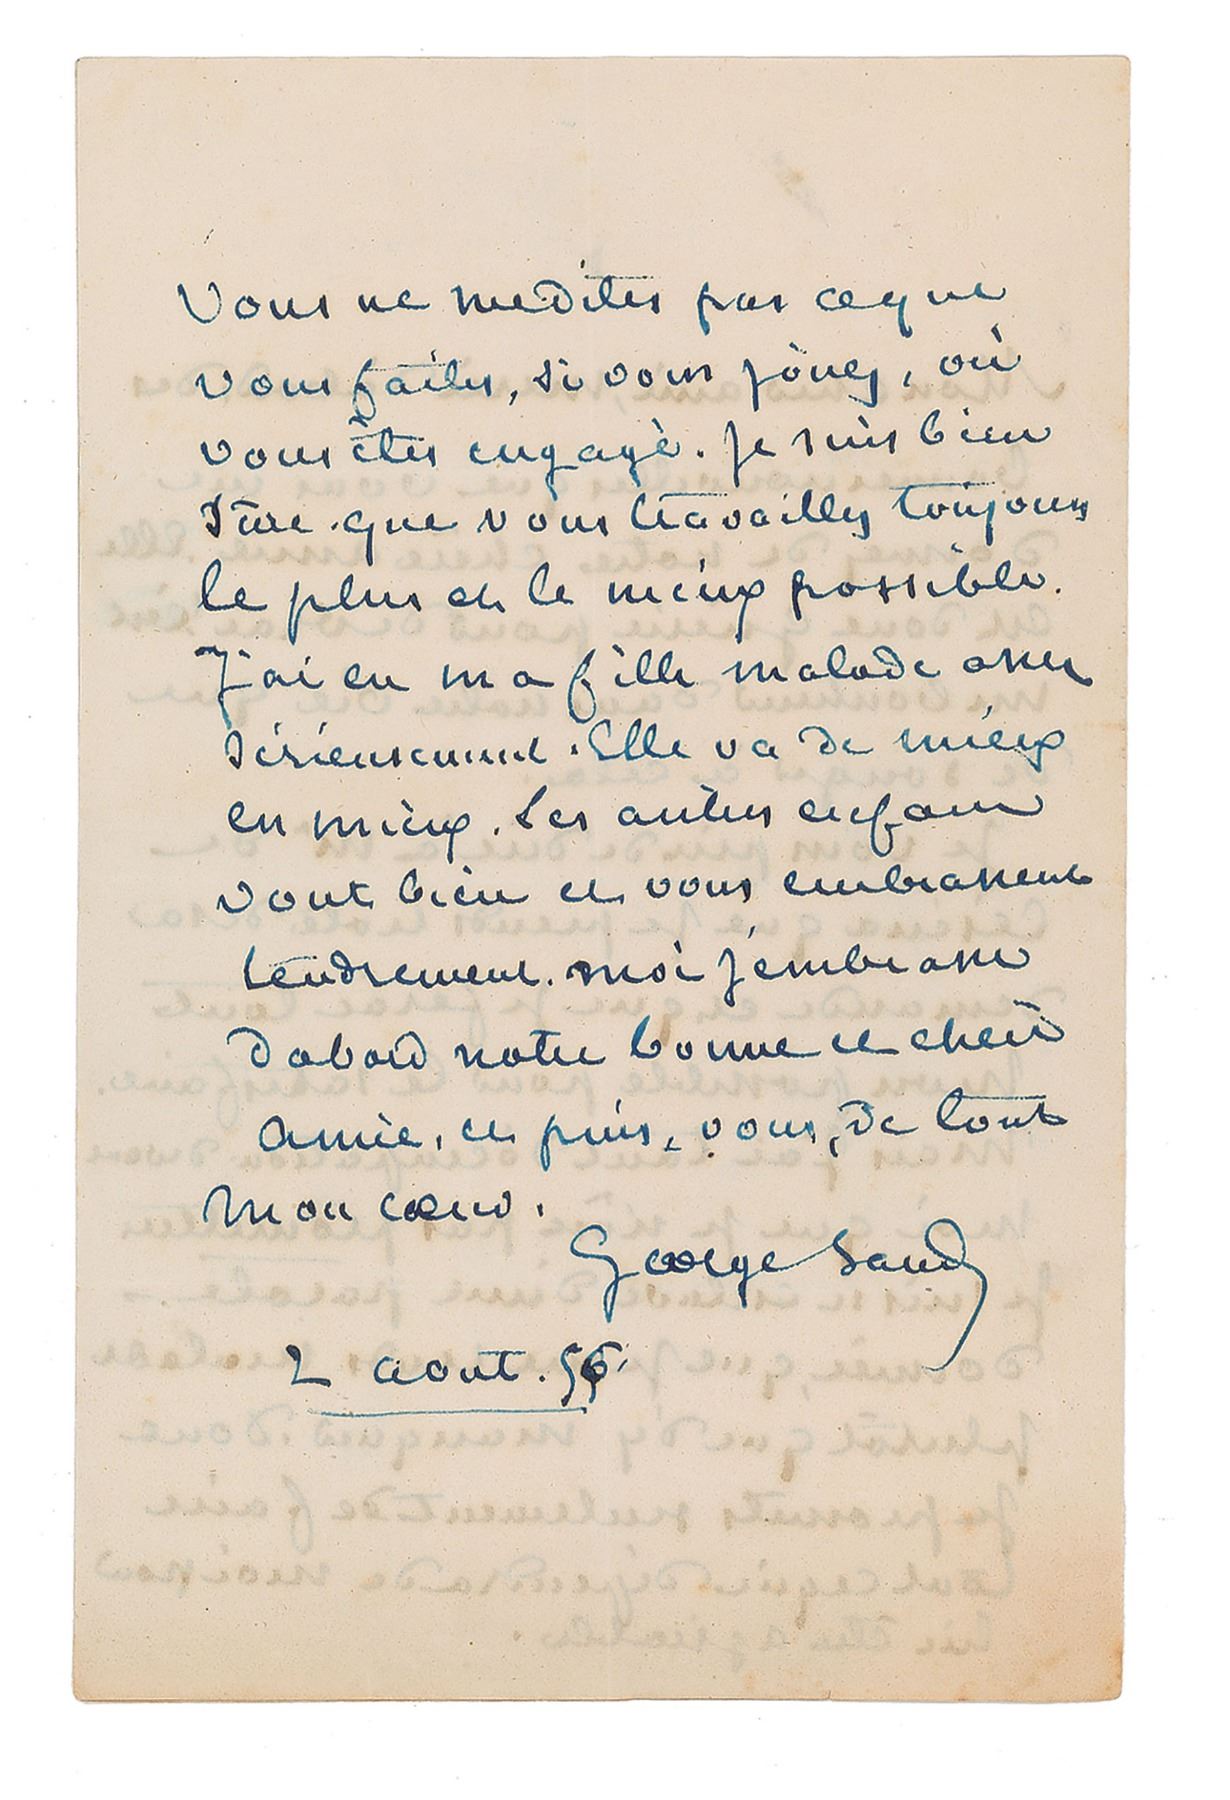 Vous ne me dites pas ce que
vous faites, si vous jouez, où
vous êtes engagé. Je suis bien
sûre que vous travaillez toujours
le plus et le mieux possible.
J'ai eu ma fille malade assez
sérieusement. Elle va de mieux
en mieux. Les autres enfans
vont bien et vous embrassent
tendrement. moi j'embrasse
d'abord notre bonne et chère
amie, et puis, vous, de tout
mon cœur.
George Sand
2 aout. 56